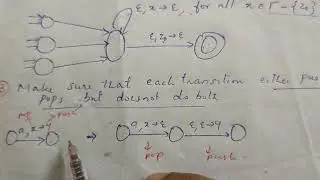 ε, x→ε, for all x∈Γ-{z₀}
ε, z₀→ε
Make sure that each transition either
pops but doesnot do both
pop push
a, x→y ⇒ a, x→ε ε, ε→y
pop push